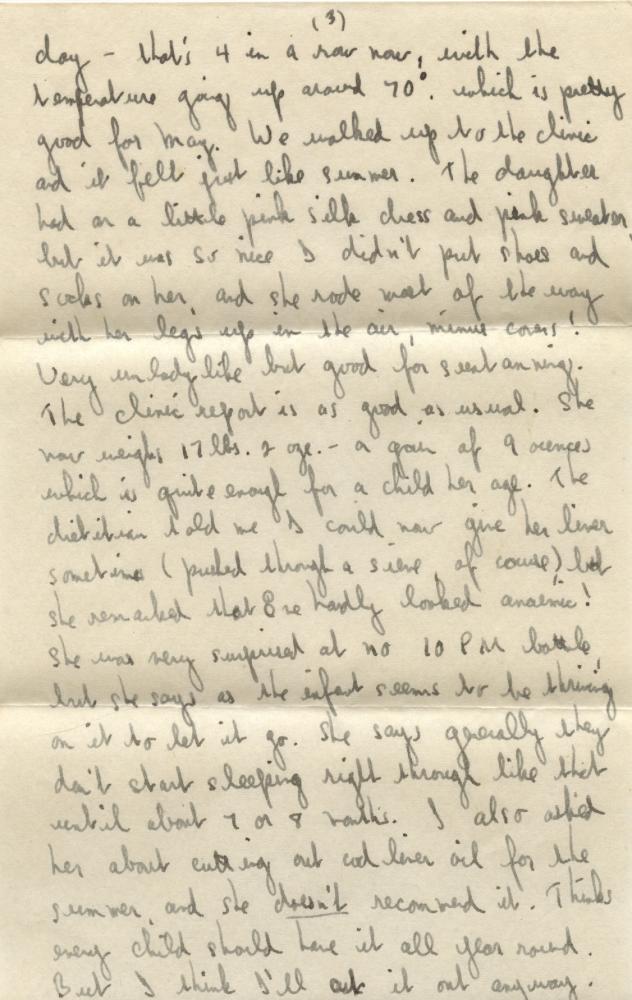 (3)
day - that's 4 in a row now, with the
temperature going up around 70°. which is pretty
good for May. We walked up to the clinic
and it felt just like summer. The daughter
had on a little pink silk dress and pink sweater,
but it was so nice I didn't put shoes and
socks on her, and she rode most of the way
with her legs up in the air, minus covers!
Very unladylike but good for suntanning.
The clinic report is as good as usual. She
now weighs 17 lbs. 2 ozs. - a gain of 9 ounces
which is quite enough for a child her age. The
dietitian told me I could now give her liver
sometimes (pushed through a sieve, of course) but
she remarked that she hardly looked anaemic!
She was very surprised at no 10 PM bottle,
but she says as the infant seems to be thriving
on it to let it go. She says generally they
don't start sleeping right through like that
until about 7 or 8 months. I also asked
her about cutting out cod liver oil for the
summer, and she doesn't recommend it. Thinks
every child should have it all year round.
But I think I'll cut it out anyway.